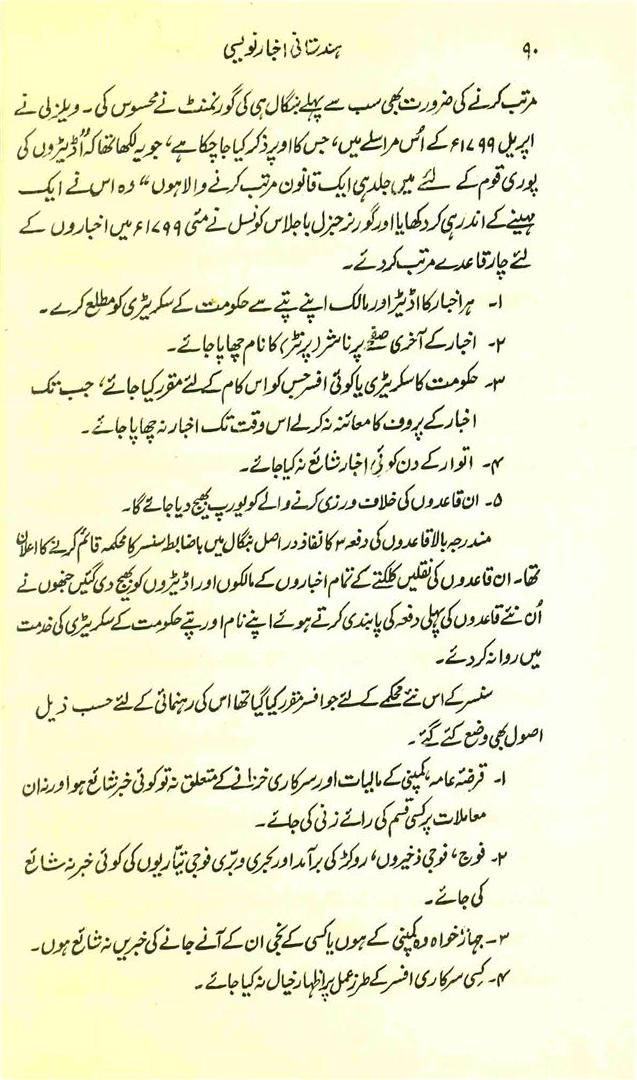 ۹۰ ہندستانی اخبار نویسی
مرتب کرنے کی ضرورت بھی سب سے پہلے بنگال ہی کی گورنمنٹ نے محسوس کی۔ ویلزلی نے
اپریل ۱۷۹۹ء کے اُس مراسلے میں، جس کا اوپر ذکر کیا جا چکا ہے، جو یہ لکھا تھا کہ "اڈیٹروں کی
پوری قوم کے لئے میں جلد ہی ایک قانون مرتب کرنے والا ہوں" وہ اس نے ایک
مہینے کے اندر ہی کر دکھایا اور گورنر جنرل با جلاس کونسل نے مئی ۱۷۹۹ء میں اخباروں کے
لئے چار قاعدے مرتب کر دئے۔
۱۔ ہر اخبار کا اڈیٹر اور مالک اپنے پتے سے حکومت کے سکریٹری کو مطلع کرے۔
۲۔ اخبار کے آخری صفحے پر ناشر (پرنٹر) کا نام چھاپا جائے۔
۳۔ حکومت کا سکریٹری یا کوئی افسر جس کو اس کام کے لئے مقرر کیا جائے، جب تک
اخبار کے پروف کا معائنہ نہ کرلے اس وقت تک اخبار نہ چھاپا جائے۔
۴۔ اتوار کے دن کوئی اخبار شائع نہ کیا جائے۔
۵۔ ان قاعدوں کی خلاف ورزی کرنے والے کو یورپ بھیج دیا جائے گا۔
مندرجہ بالا قاعدوں کی دفعہ ۳ کا نفاذ در اصل بنگال میں باضابطہ سنسر کا محکمہ قائم کرنے کا اعلان
تھا۔ ان قاعدوں کی نقلیں کلکتے کے تمام اخباروں کے مالکوں اور اڈیٹروں کو بھیج دی گئیں جنھوں نے
اُن نئے قاعدوں کی پہلی دفعہ کی پابندی کرتے ہوئے اپنے نام اور پتے حکومت کے سکریٹری کی خدمت
میں روانہ کر دئے۔
سنسر کے اس نئے محکمے کے لئے جو افسر مقرر کیا گیا تھا اس کی رہنمائی کے لئے حسب ذیل
اصول بھی وضع کئے گئے۔
۱۔ قرضۂ عامہ، کمپنی کے مالیات اور سرکاری خزانے کے متعلق نہ تو کوئی خبر شائع ہو اور نہ ان
معاملات پر کسی قسم کی رائے زنی کی جائے۔
۲۔ فوج، فوجی ذخیروں، روکڑ کی برآمد اور بحری و برّی فوجی تیّاریوں کی کوئی خبر نہ شائع
کی جائے۔
۳۔ جہاز خواہ وہ کمپنی کے ہوں یا کسی کے نجی ان کے آنے جانے کی خبریں نہ شائع ہوں۔
۴۔ کسی سرکاری افسر کے طرزِ عمل پر اظہار خیال نہ کیا جائے۔